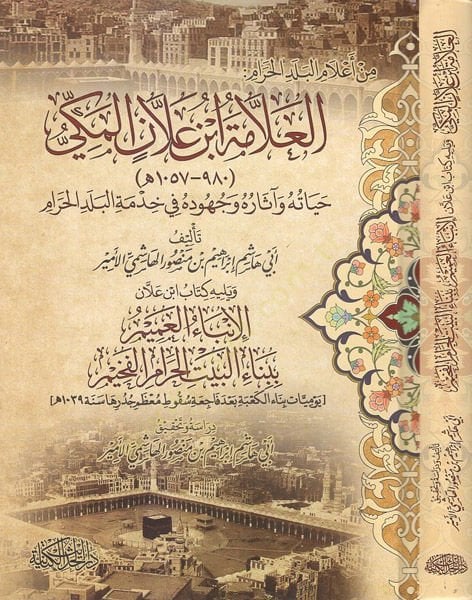 من أعلام البلد الحرام:
العلامة ابن علان المكي
(٩٨٠-١٠٥٧ه)
حياته وآثاره وجهوده في خدمة البلد الحرام
تأليف
أبي هاشم إبراهيم بن منصور الهاشمي الأمير
ويليه كتاب ابن علان
الإنباء العميم
ببناء البيت الحرام الفخيم
[يوميات بناء الكعبة بعد فاجعة سقوط معظم جدرها سنة ١٠٣٩ه]
دراسة وتحقيق
أبي هاشم إبراهيم بن منصور الهاشمي الأمير
العلامة ابن علان المكي
ويليه كتاب ابن علان
الإنباء العميم ببناء البيت الحرام الفخيم
تأليف ودراسة وتحقيق
أبي هاشم إبراهيم بن منصور الهاشمي الأمير